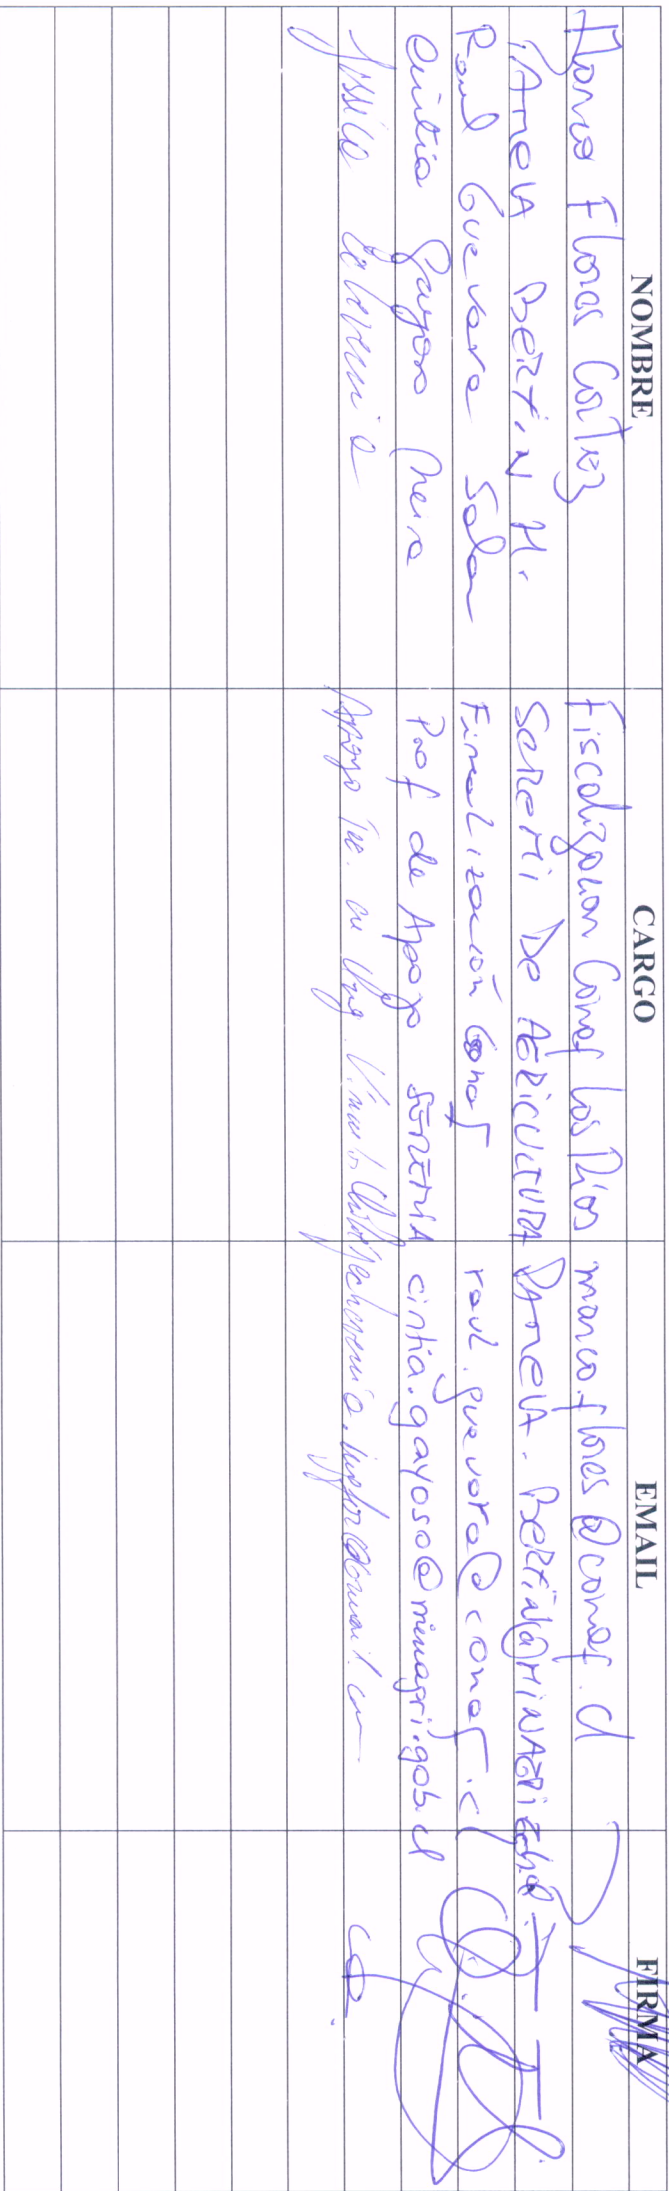 NOMBRE CARGO EMAIL FIRMA
Marco Flores Cortez Fiscalizacion Conaf Los Ríos marco.flores@conaf.cl
PAMELA BERTIN H. SEREMI DE AGRICULTURA PAMELA.BERTIN@MINAGRI.gob.cl
Raul Guevara Salan Fiscalización Conaf raul.guevara@conaf.cl
Cintia Gayoso Neira Prof de Apoyo SEREMIA cintia.gayoso@minagri.gob.cl
Jessica Apoyo